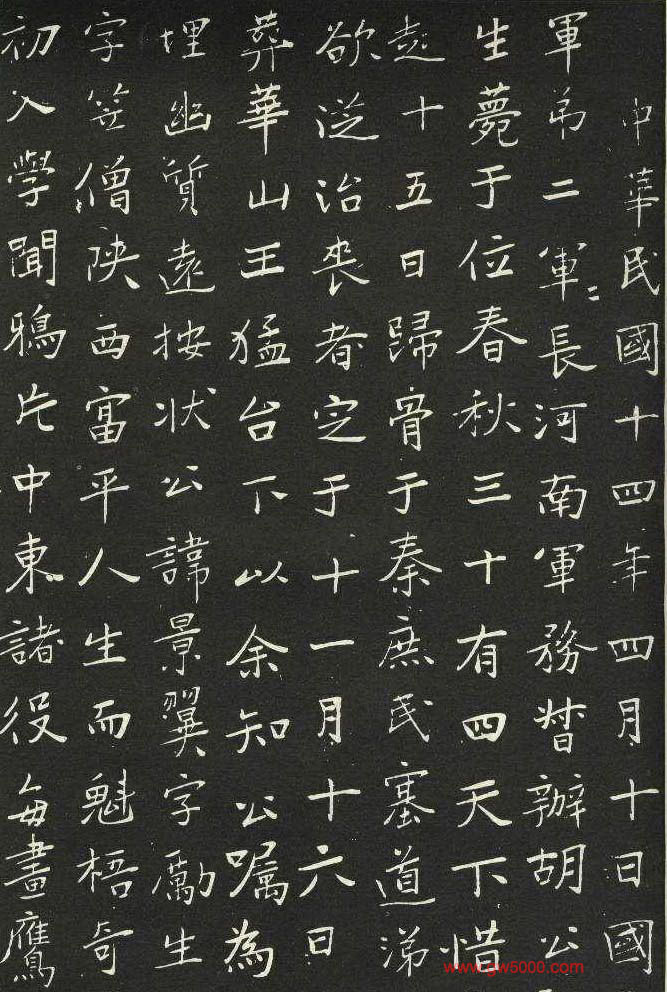 中華民國十四年四月十日國
軍弟二軍〻長河南軍務督辦胡公
生薨于位春秋三十有四天下惜
越十五日歸骨于秦庶民塞道涕
欲從治喪者定于十一月十六日
葬華山王猛台下以余知公囑為
埋幽質遠按状公諱景翼字勵生
字笠僧陝西富平人生而魁梧奇
初入學聞鴉片中東諸役每畫鷹
www.gw5000.com